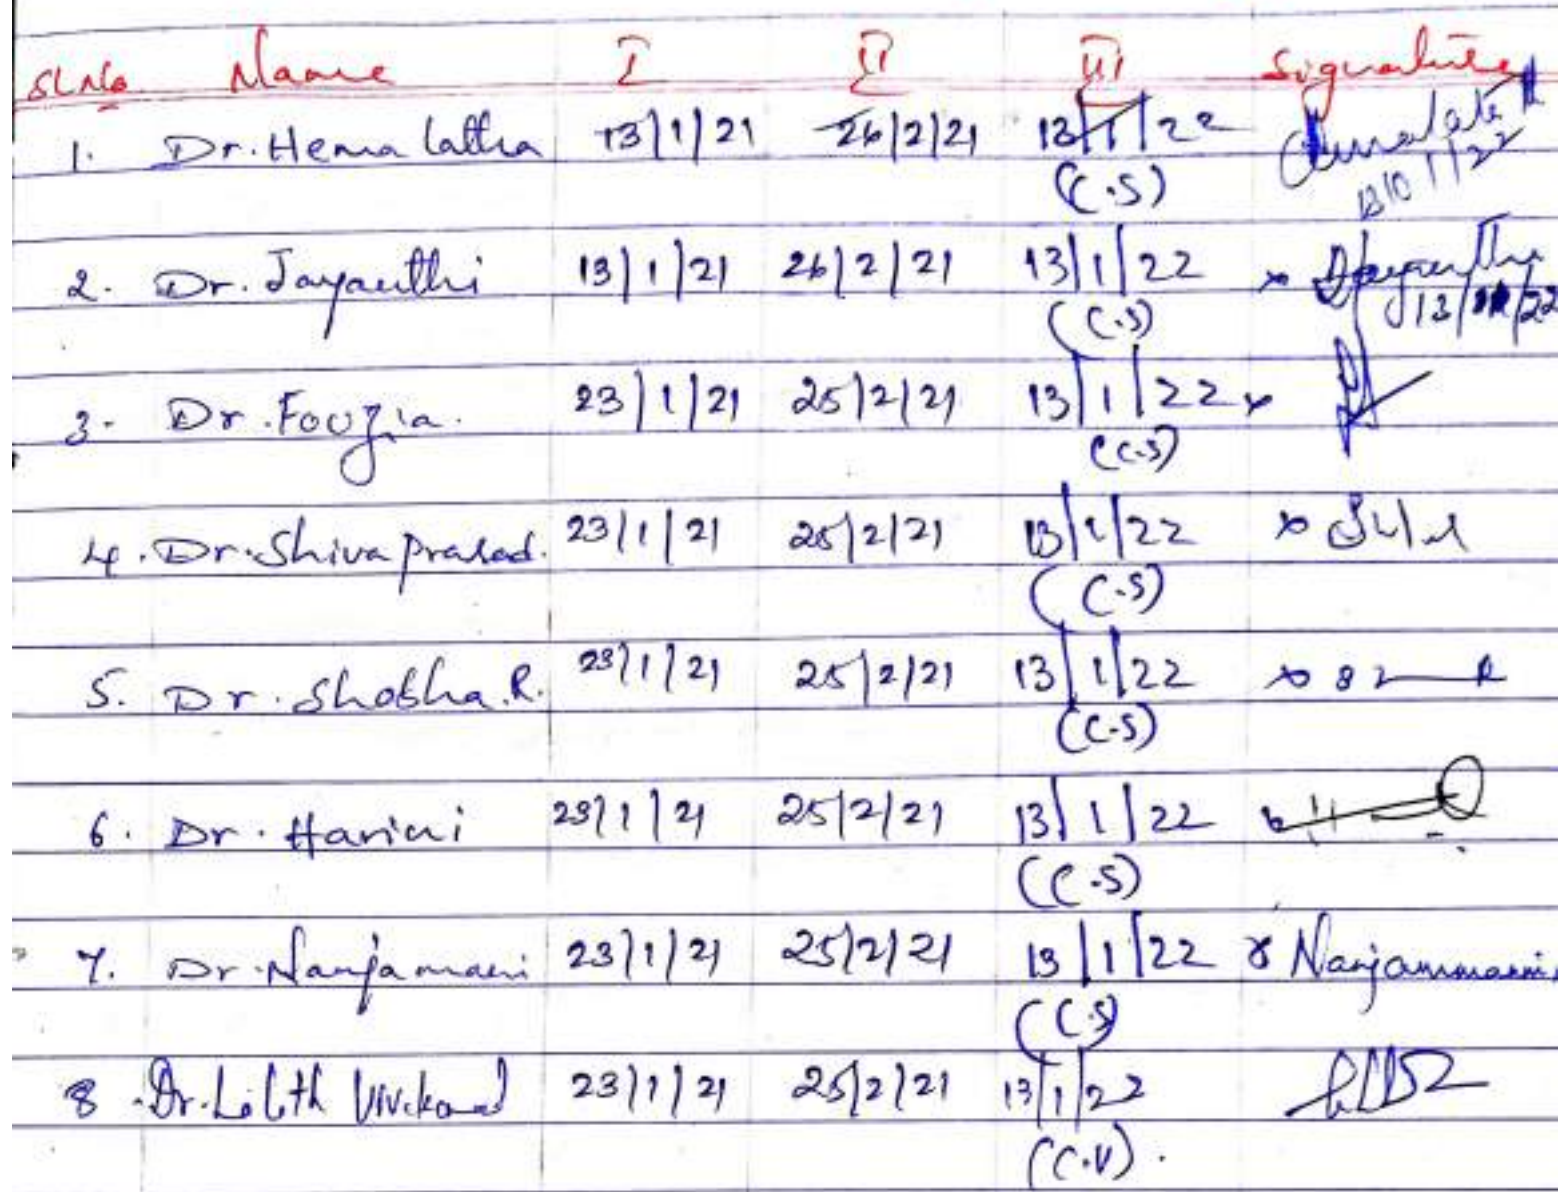 Sl.No Name I II III Signature
1. Dr. Hema latha 13/1/21 26/2/21 13/1/22
(C.S) 13/01/22
2. Dr. Jayanthi 13/1/21 26/2/21 13/1/22 Jayanthi
(C.S) 13/1/22
3. Dr. Fouzia. 23/1/21 25/2/21 13/1/22
(C.S)
4. Dr. Shiva prasad. 23/1/21 25/2/21 13/1/22
(C.S)
5. Dr. Shobha. R. 23/1/21 25/2/21 13/1/22
(C.S)
6. Dr. Harini 23/1/21 25/2/21 13/1/22
(C.S)
7. Dr. Nanjamani 23/1/21 25/2/21 13/1/22 Nanjammani
(C.S)
8. Dr. Lalith Vivekanand 23/1/21 25/2/21 13/1/22
(C.V).